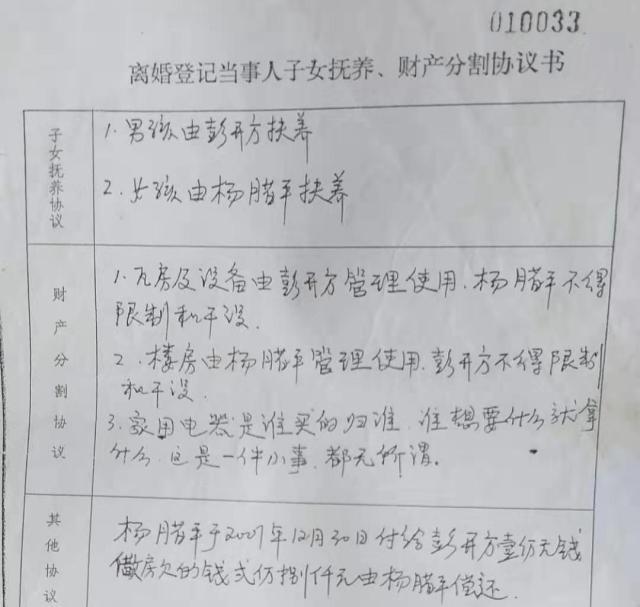 010033
离婚登记当事人子女抚养、财产分割协议书
子女抚养协议
1.男孩由彭开方扶养
2.女孩由杨腊平扶养
财产分割协议
1.瓦房及设备由彭开方管理使用.杨腊平不得
限制和干设.
2.楼房由杨腊平管理使用.彭开方不得限制
和干设.
3.家用电器是谁买的归谁.谁想要什么就拿
什么.这是一件小事.都无所谓。
其他协议
杨腊平于2007年12月30日付给彭开方壹仟元钱
做房欠的钱 仟元由杨腊平偿还.